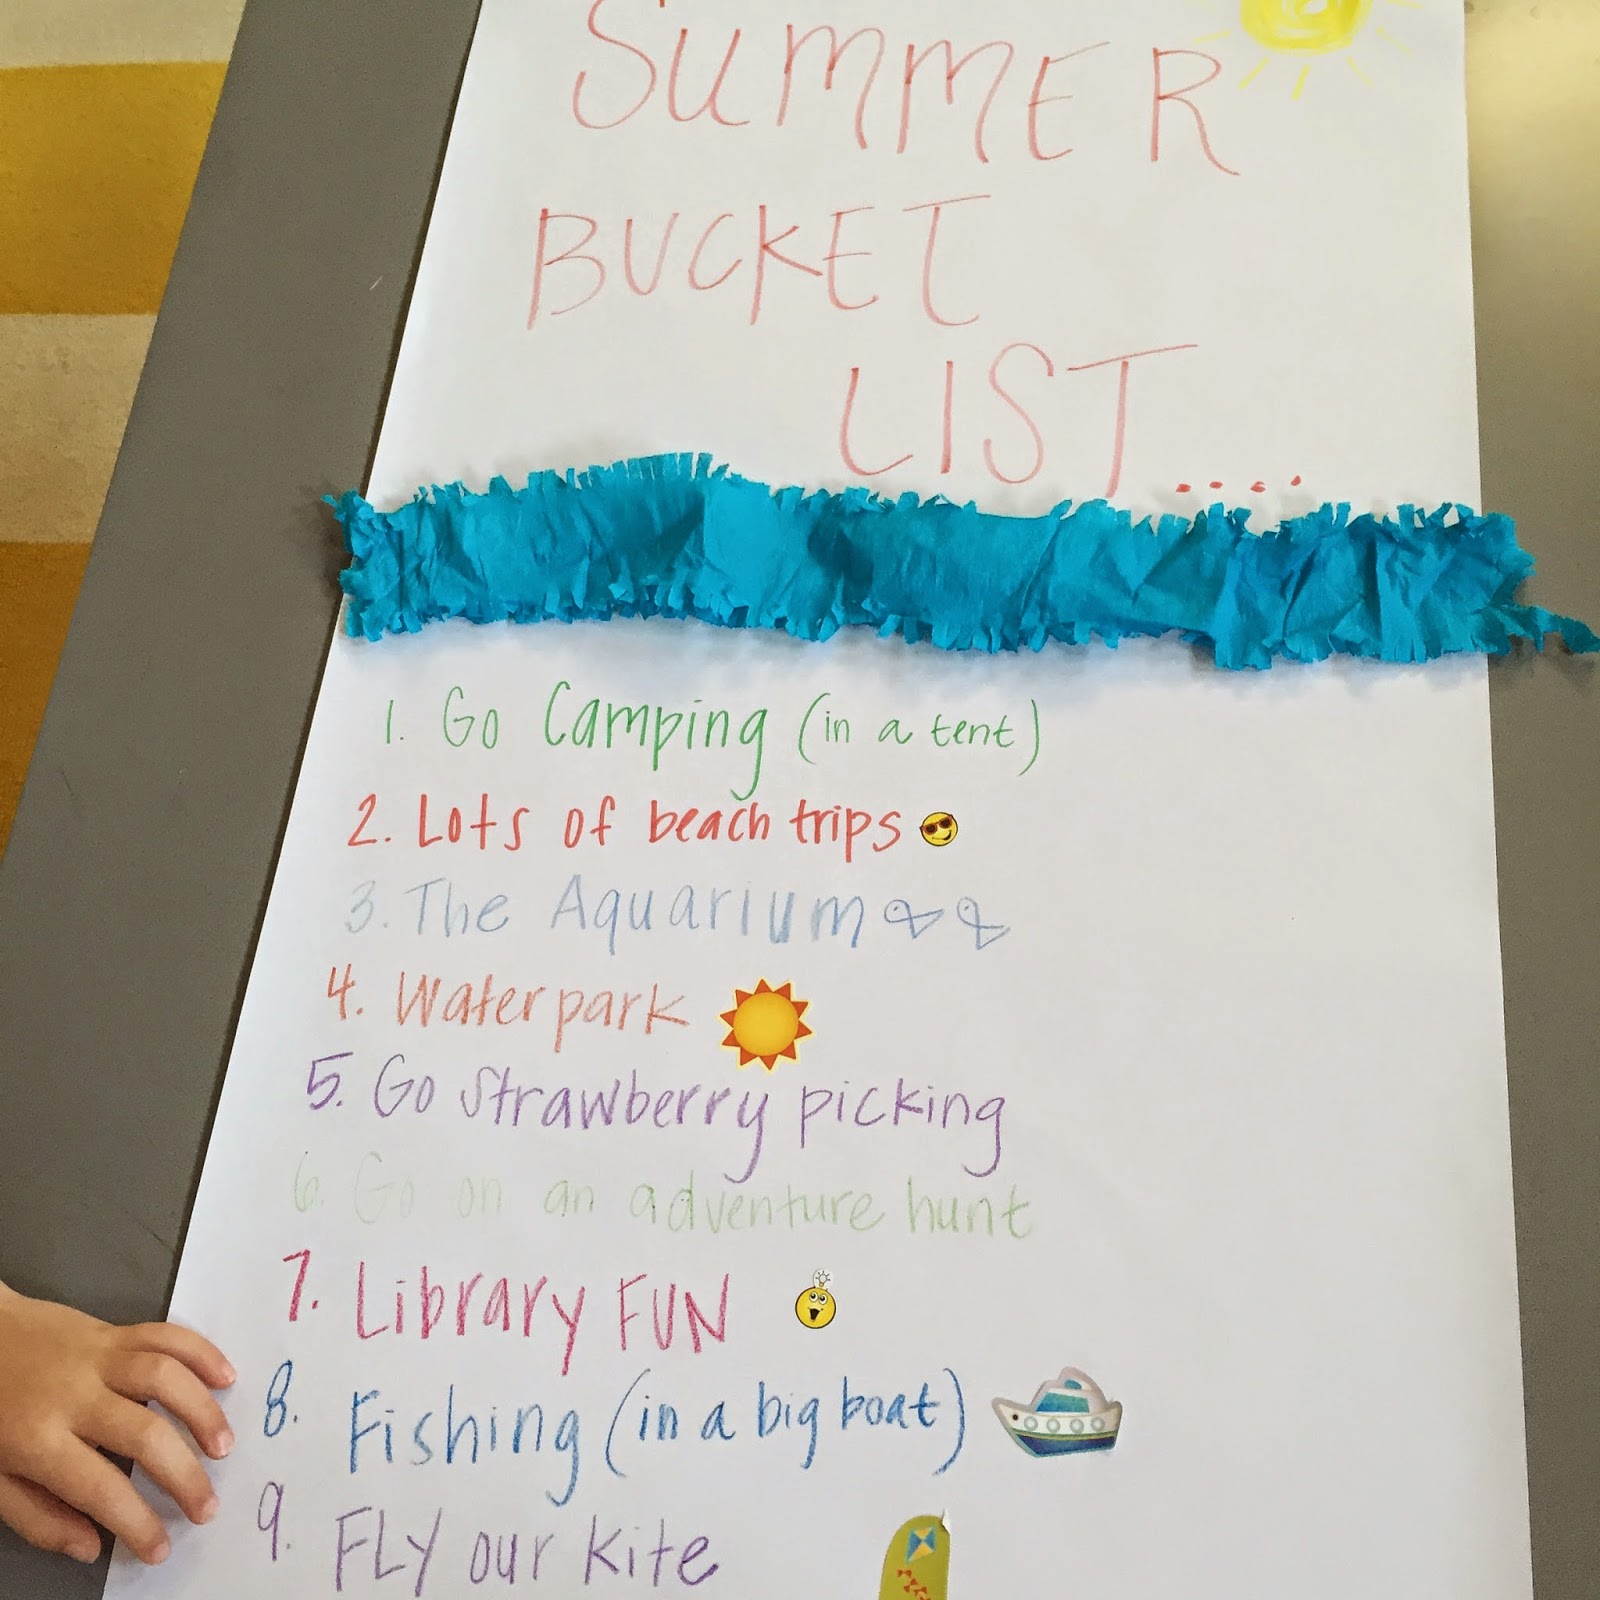 SUMMER
BUCKET
LIST....
1. Go Camping (in a tent)
2. Lots of beach trips
3. The Aquarium
4. Waterpark
5. Go Strawberry picking
6. Go on an adventure hunt
7. Library FUN
8. Fishing (in a big boat)
9. FLY our kite